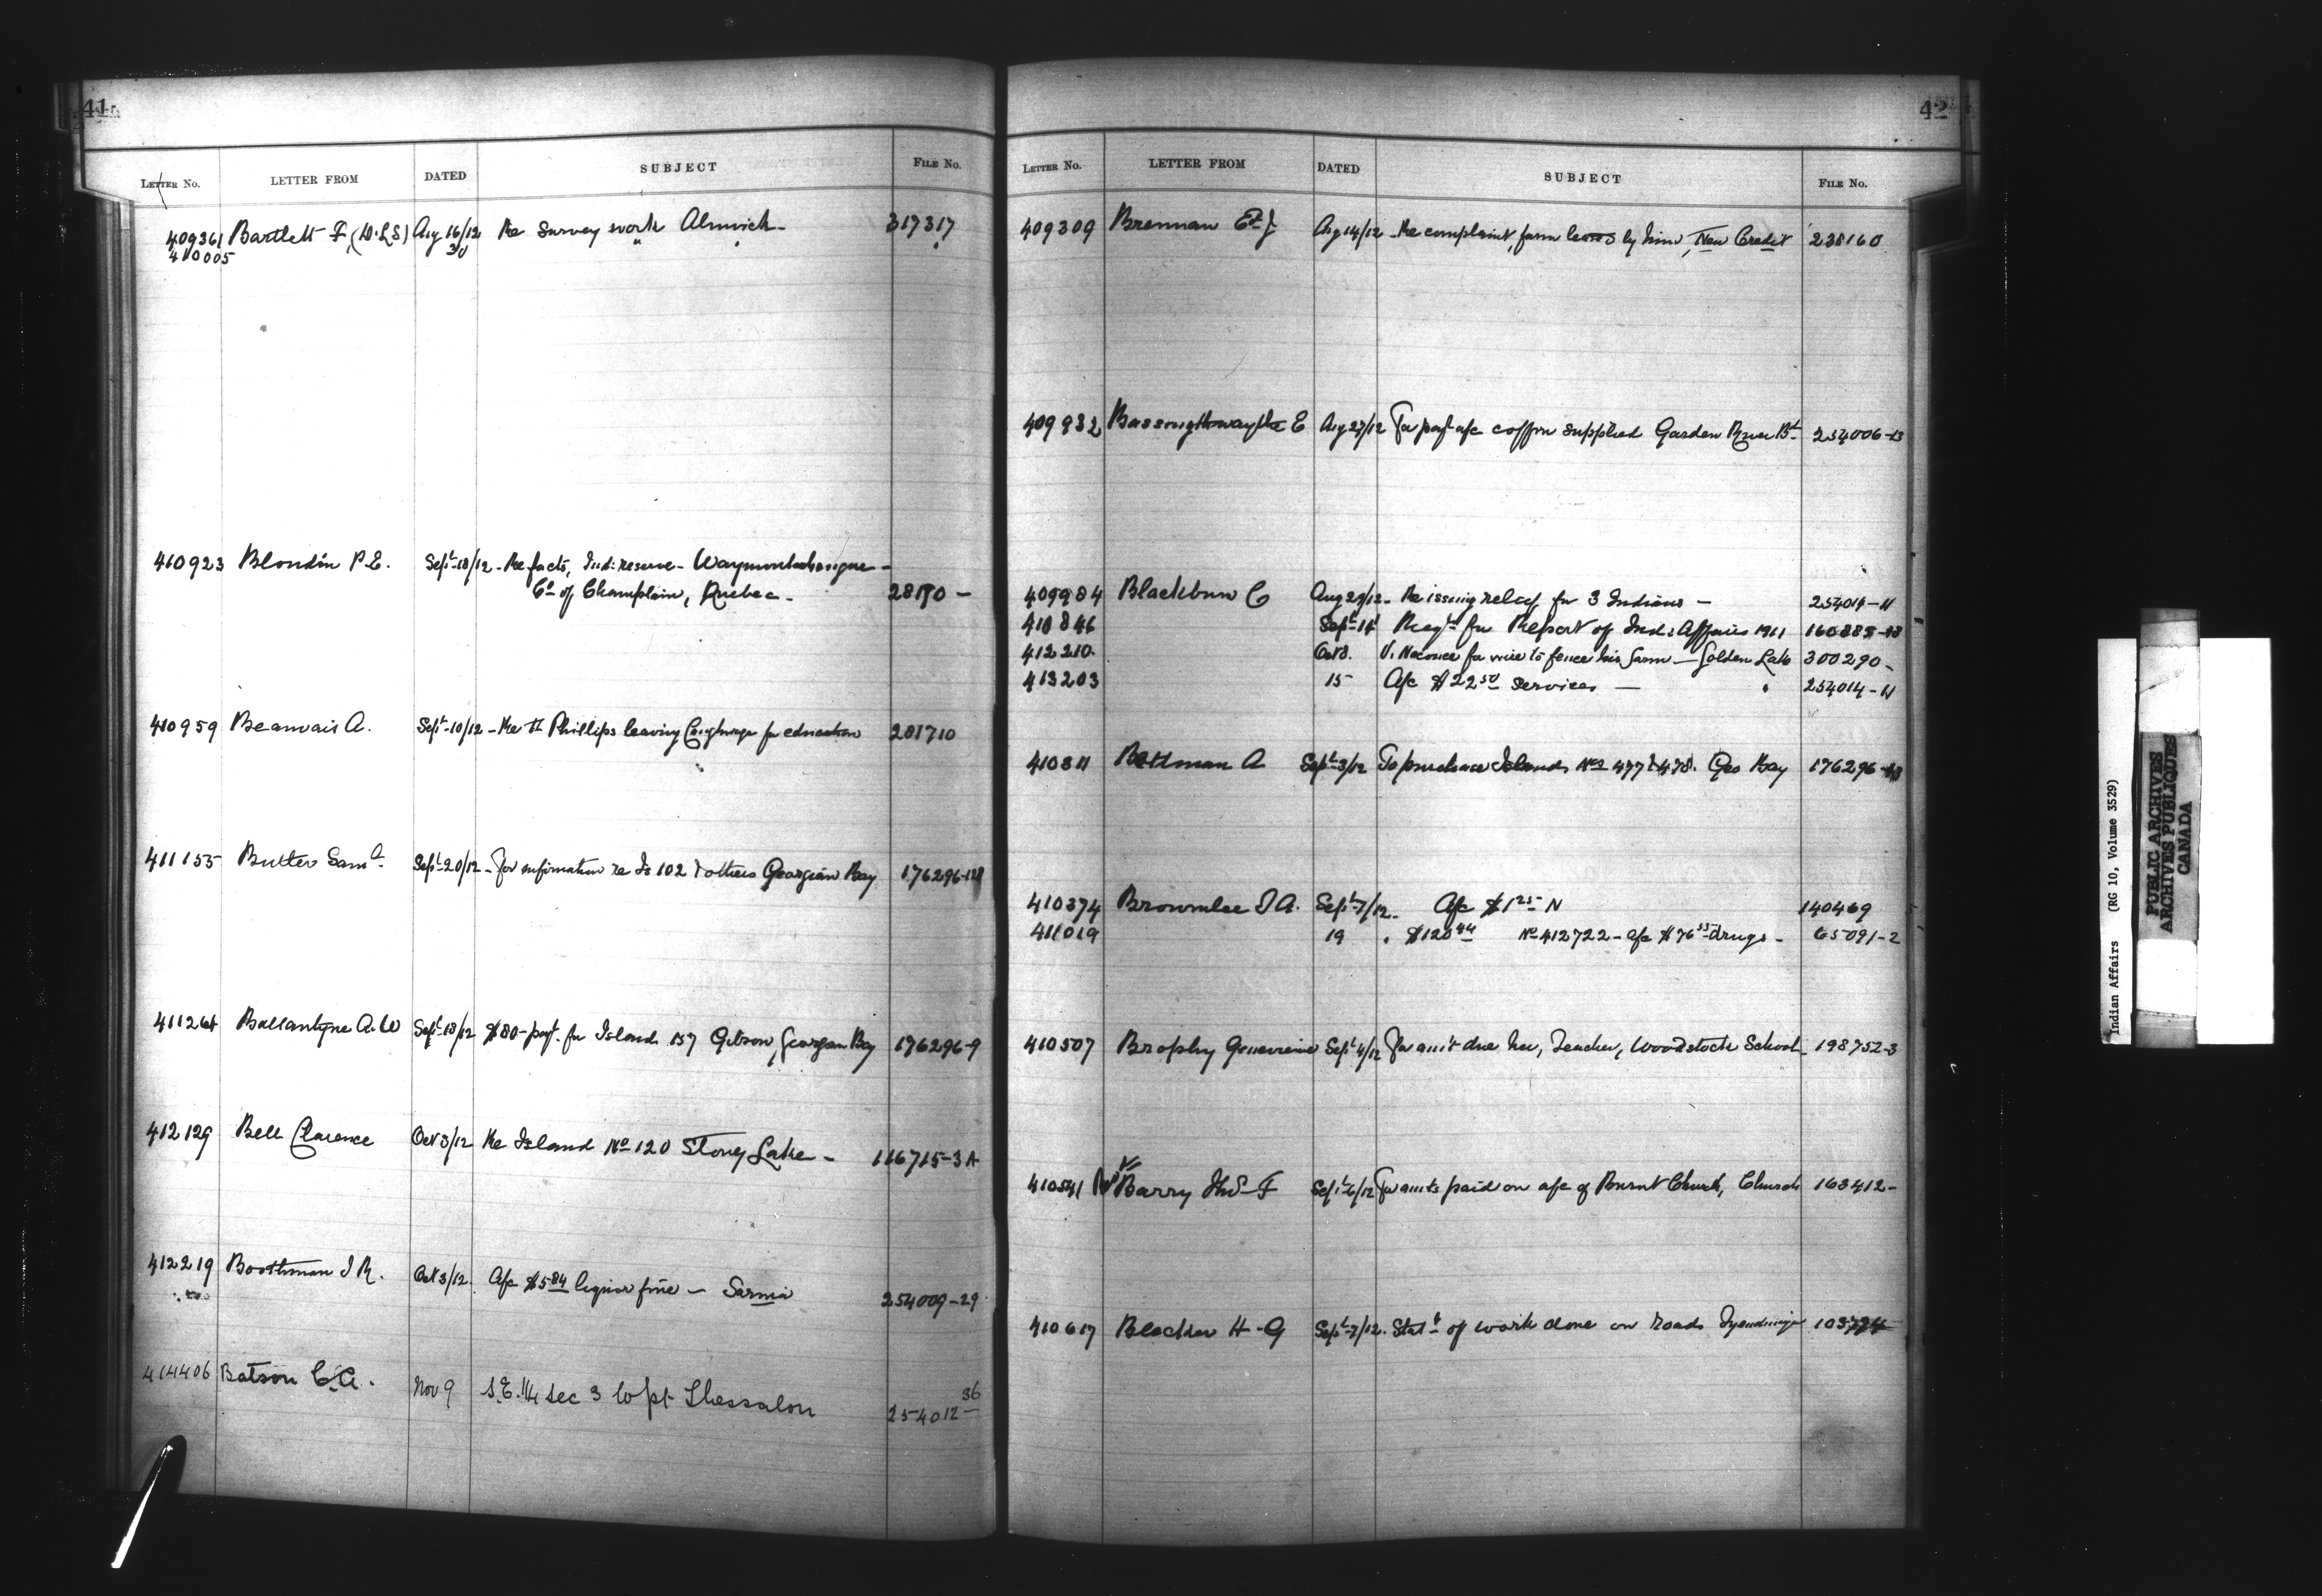 41
LETTER No. LETTER FROM DATED SUBJECT FILE No.
409361 Bartlett F, (D.L.S) Aug 16/12 Re Survey work Alnwick - 317317
410005 30 " " "
410923 Blondin P.E. Sept 18/12 - Re facts, Ind: reserve -
Co of Champlain, Quebec - 28170 -
410959 Beauvais A. Sept 10/12 - Re Phillips leaving Caughnaga for education 281710
411155 Butler Saml. Sept 20/12 - For information re Is 102 & others Georgian Bay 176296-
411264 Ballantyne A.W Sept 18/12 $80 - payt. for Island 157 Gibson, Georgian Bay 176296-9
412129 Bell Clarence Oct 3/12 Re Island No 120 Stoney Lake - 116715-3A
412219 Boothman J R. Oct 3/12. A/c $5.84 liquor fine - Sarnia 254009-29
414406 Batson C.A. Nov 9 S.E. 1/4 Sec 3 Thessalon 254012-36
42
LETTER No. LETTER FROM DATED SUBJECT FILE No.
409309 Brennan E J Aug 14/12 - Re complaint, farm leased by him, New Credit 238160
409932 E Aug 27/12 For payt a/c coffin supplied Garden River Bd. 254006-13
409984 Blackburn C Aug 29/12 - Re issuing relief for 3 Indians - 254014-11
410846 Sept 14 Reqt for Report of Ind: Affairs 1911
412210 Oct 3. for wire to fence his farm - Golden Lake 300290 -
413203 15 A/c $22.50 services - " 254014-11
410311 Bettman A Sept 3/12 To purchase Islands Nos 477 & 478. Geo Bay 176296-
410374 Brownlee J A. Sept 7/12 - A/c $1.25 N 140469
411019 19 " $120.44 No 412722 - a/c $76.55 drugs - 65091-2
410507 Brophy Genevieve Sept 4/12 For am't due her, Teacher, Woodstock School - 198752-3
410541 Barry F Sept 6/12 For amts paid on a/c of Burnt Church, Church 163412 -
410617 Blecker H-G Sept 7/12. Statt of work done on roads Tyendinaga
Indian Affairs (RG 10, Volume 3529)
PUBLIC ARCHIVES
ARCHIVES PUBLIQUES
CANADA